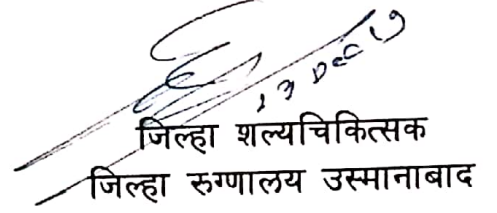 13 Dec 19
जिल्हा शल्यचिकित्सक
जिल्हा रुग्णालय उस्मानाबाद